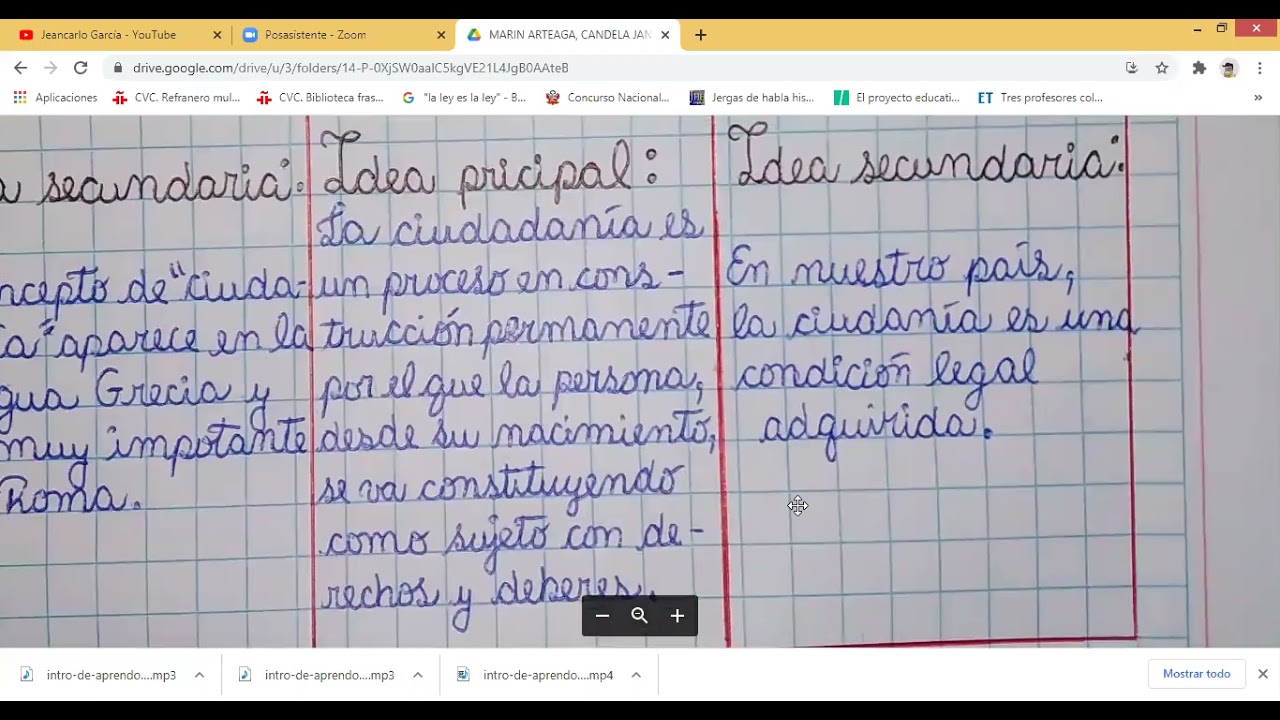 Jeancarlo García - YouTube
Posasistente - Zoom
MARIN ARTEAGA, CANDELA JAN
drive.google.com/drive/u/3/folders/14-P-0XjSW0aalC5kgVE21L4JgB0AAteB
Aplicaciones
CVC. Refranero mul...
CVC. Biblioteca fras...
"la ley es la ley" - B...
Concurso Nacional...
Jergas de habla his...
El proyecto educati...
ET Tres profesores col...
»
a secundaria:
ncepto de "ciuda-
ía" aparece en la
gua Grecia y
muy impotante
Roma.
Idea pricipal:
La ciudadanía es
un proceso en cons-
trucción permanente
por el que la persona,
desde su nacimiento,
se va constituyendo
como sujeto con de-
rechos y deberes.
Idea secundaria:
En nuestro país,
la ciudanía es una
condición legal
adquirida.
intro-de-aprendo....mp3
intro-de-aprendo....mp3
intro-de-aprendo....mp4
Mostrar todo